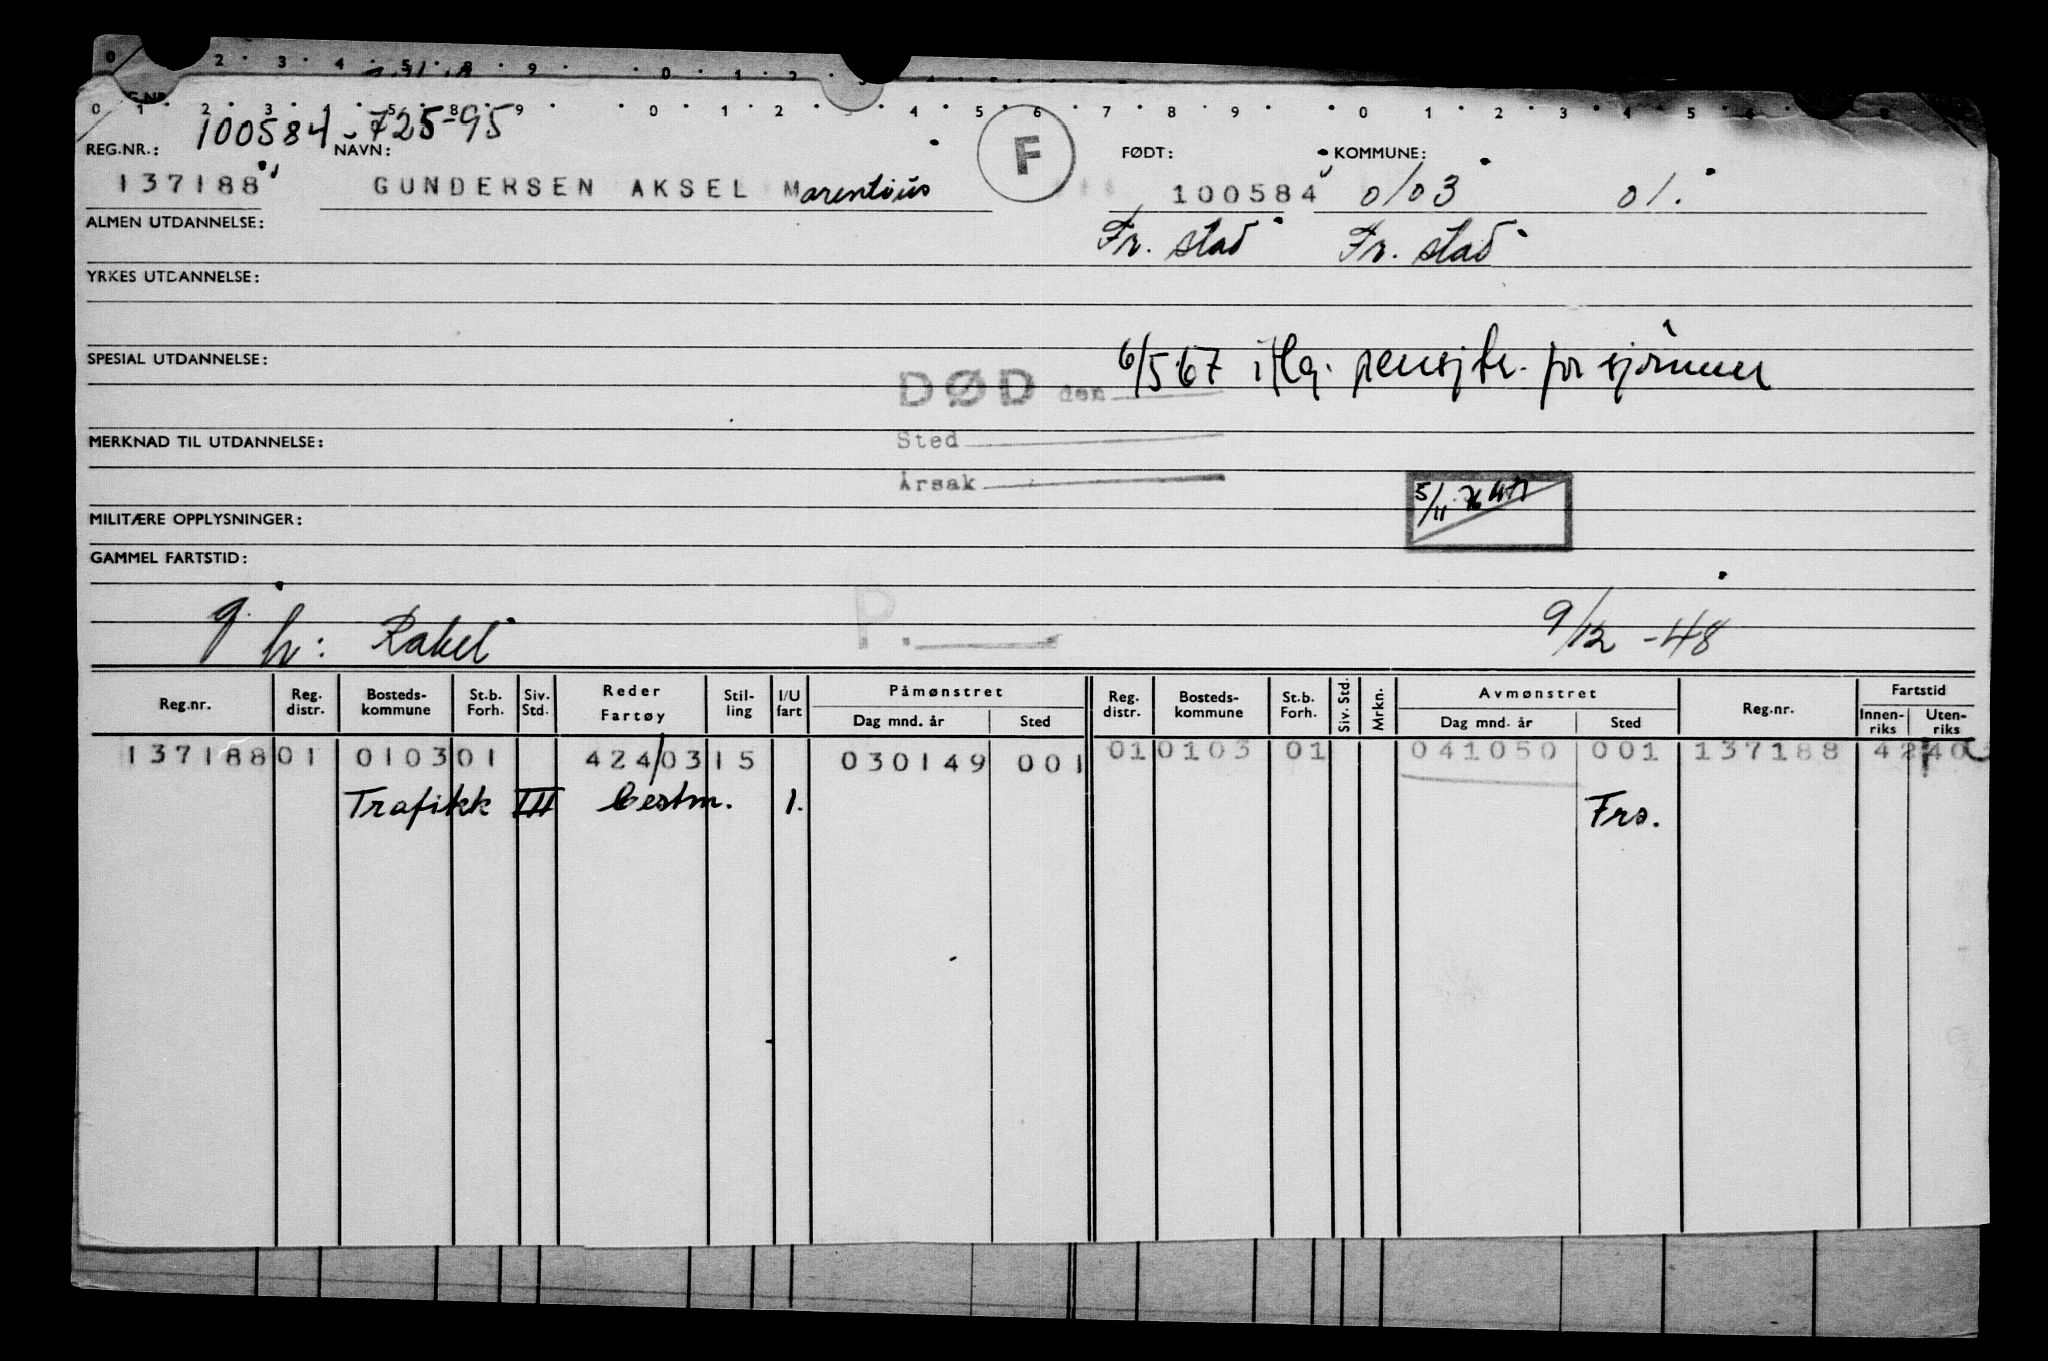 0 2 3 4 5 8 9 0 1 2 3 4 5 6
0 1 2 3 4 5 8 9 0 1 2 3 4 5 6 7 8 9 0 1 2 3 4 5 6 8
100584-72595
REG.NR.: NAVN: F FØDT: KOMMUNE:
137188 GUNDERSEN AKSEL Marentius 100584 0103 01.
ALMEN UTDANNELSE: Fr. stad Fr. stad
YRKES UTDANNELSE:
SPESIAL UTDANNELSE:
DØD den 6/5 67 iflg. pensjtr. for sjömenn
MERKNAD TIL UTDANNELSE: Sted
Årsak
5/11 76
MILITÆRE OPPLYSNINGER:
GAMMEL FARTSTID:
g. h: Rakel P. 9/12-48
Reg.nr. Reg. distr. Bosteds-kommune St.b. Forh. Siv. Std. Reder Fartøy Stil-ling I/U fart Påmønstret Dag mnd. år Sted Reg. distr. Bosteds-kommune St.b. Forh. Siv. Std. Mrkn. Avmønstret Dag mnd. år Sted Reg.nr. Fartstid Innen-riks Uten-riks
137188 01 0103 01 424/03 15 030149 001 01 0103 01 041050 001 137188 42 40
Trafikk III Bestm. 1. Frs.